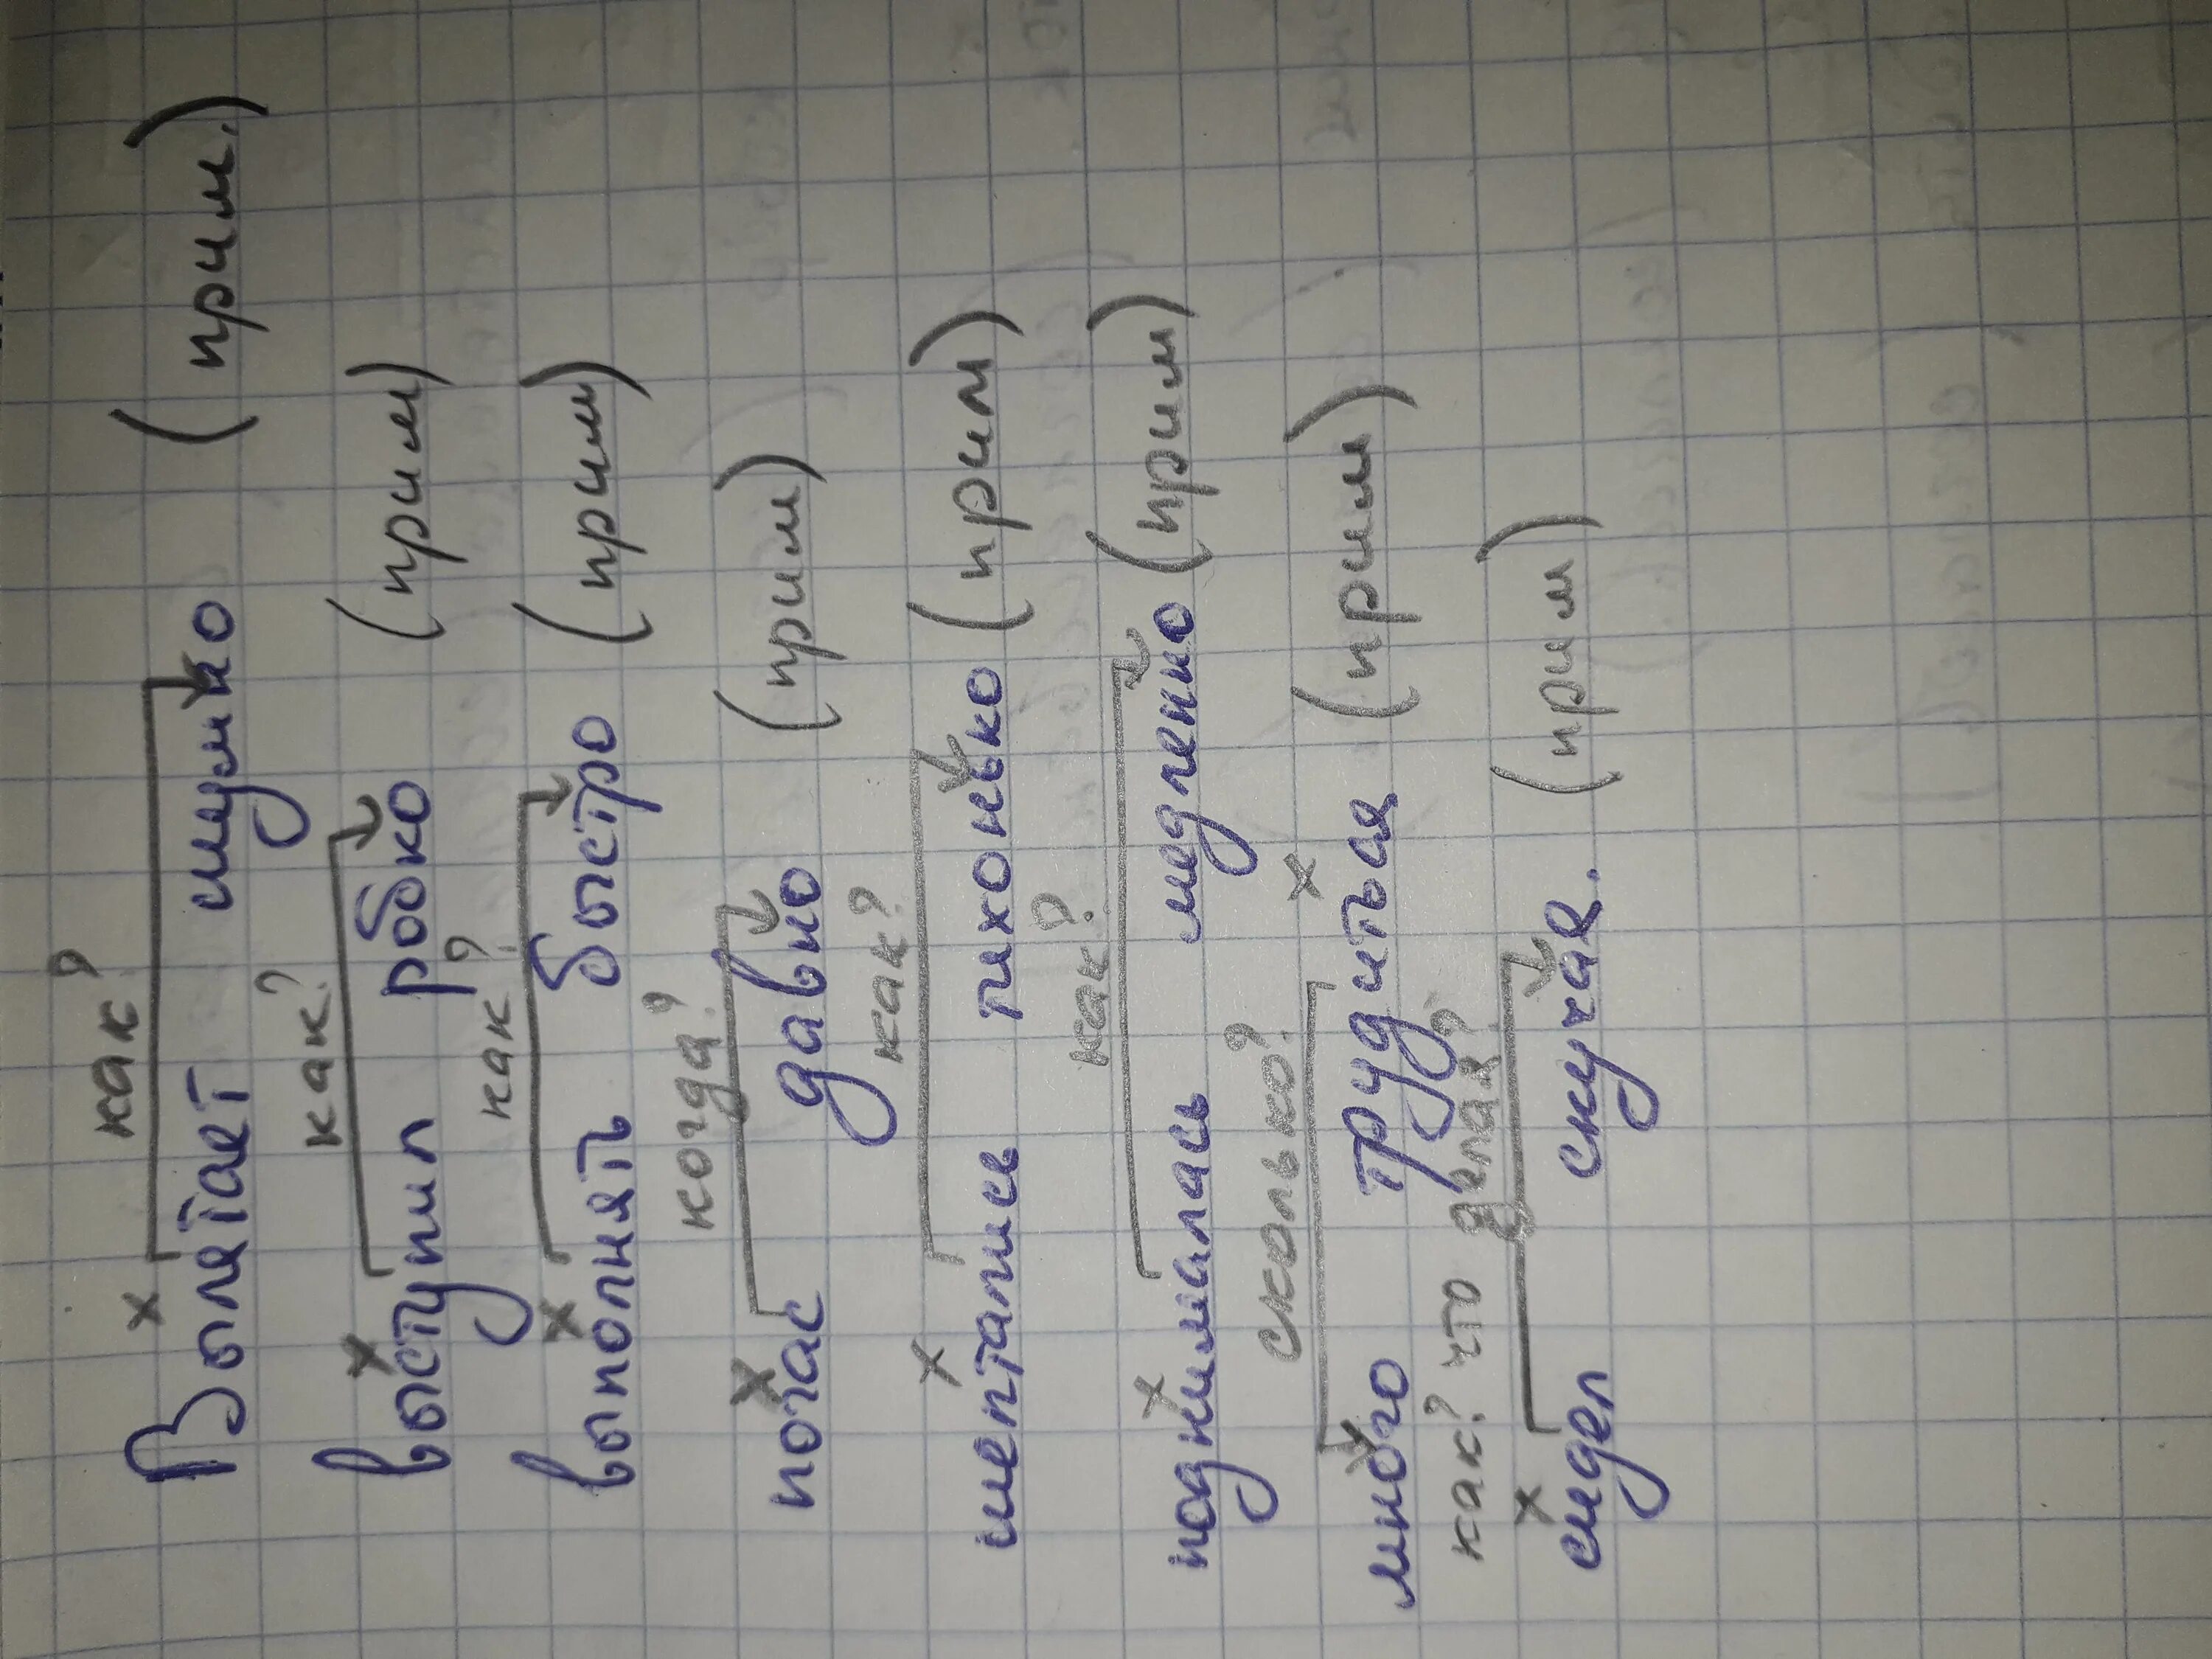 как?
Вылетает шумно (прим.)
как?
выступил робко (прим)
как?
выполнять быстро (прим)
когда?
погас давно (прим)
как?
шептались тихонько (прим)
как?
поднималась медленно (прим)
сколько?
много трудиться (прим)
как? что делая?
сидел скучая. (прим)